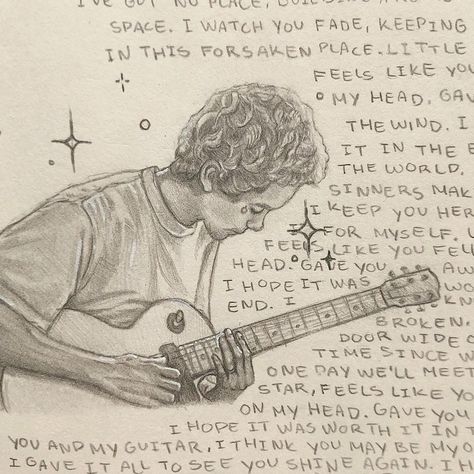 I'VE GOT NO PLACE, BUILDING
SPACE. I WATCH YOU FADE, KEEPING
IN THIS FORSAKEN PLACE. LITTLE
FEELS LIKE YOU
MY HEAD. GAV
THE WIND. I
IT IN THE E
THE WORLD.
SINNERS MAK
I KEEP YOU HER
FOR MYSELF. L
FEELS LIKE YOU FELL
HEAD. GAVE YOU AW
I HOPE IT WAS WO
END. I KN
BROKEN.
DOOR WIDE O
TIME SINCE W
ONE DAY WE'LL MEET
STAR, FEELS LIKE YO
ON MY HEAD. GAVE YOU
I HOPE IT WAS WORTH IT IN T
YOU AND MY GUITAR, I THINK YOU MAY BE MY O
I GAVE IT ALL TO SEE YOU SHINE AGAIN. I